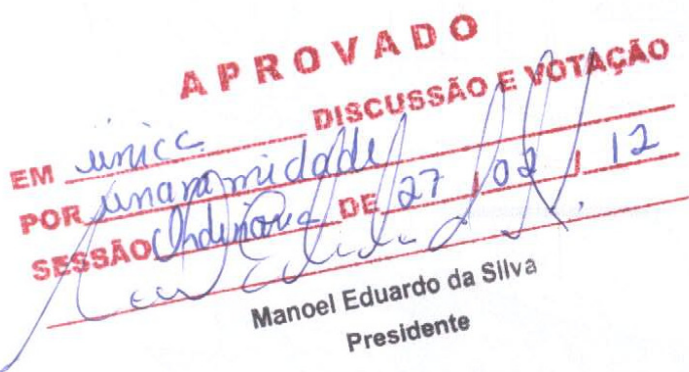 APROVADO
EM única DISCUSSÃO E VOTAÇÃO
POR unanimidade
SESSÃO Ordinária DE 27 / 02 / 12
Manoel Eduardo da Silva
Presidente